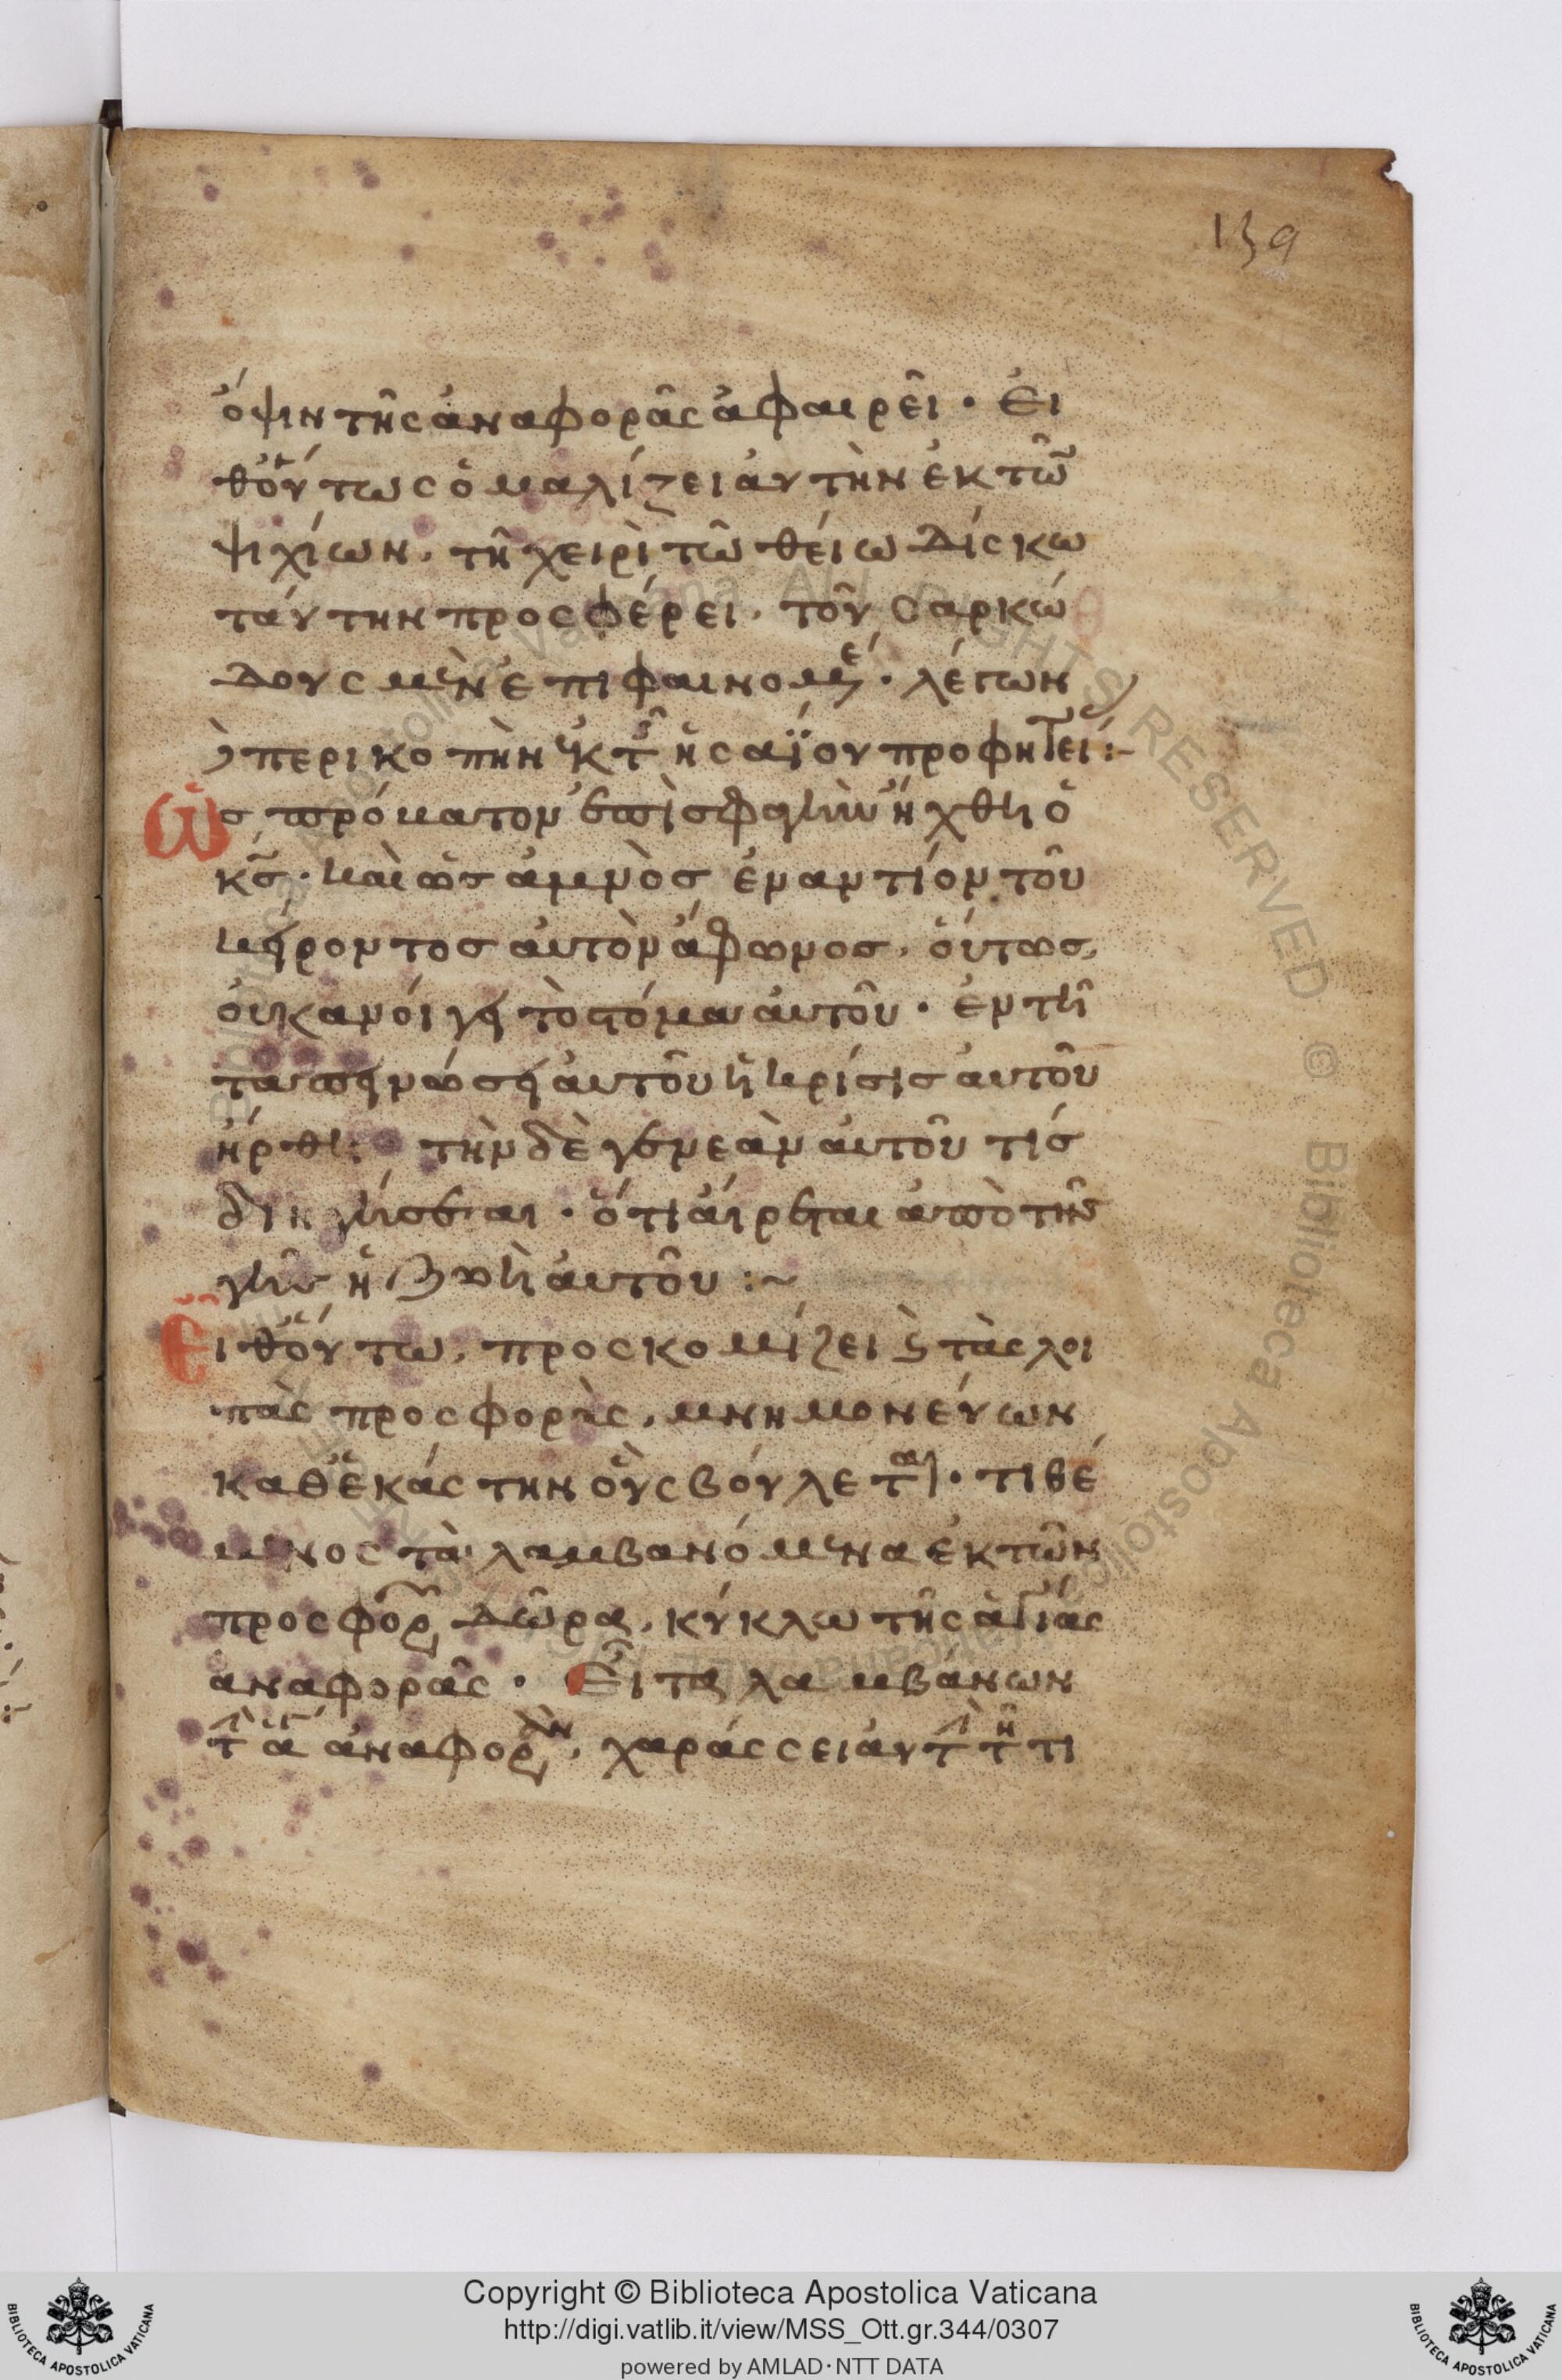 139
ὄψιν τῆς ἀναφορᾶς ἀφαιρεῖ · Εἶ
θ' οὕτως ὁμαλίζει ἀυτὴν ἐκ τῶν
ψιχίων, τῆ χειρὶ τῶ θείω δίσκω
ταύτην προσφέρει, τοῦ σαρκώ
δους μὲν ἐπιφαινομέν · λέγων
περικοπὴν ἐκ τ ἡσαΐου προφητεί :~
Ὡς πρόβατον ἐπὶ σφαγὴν ἤχθη ὁ
κς · καὶ ὡς ἀμνὸς ἐναντίον τοῦ
κείροντος ἀυτὸν ἄφωνος, ὅυτως
ὀυκ ἀνοίγει τὸ στόμα ἀυτοῦ · ἐν τῆ
ταπεινώσει ἀυτοῦ ἡ κρίσις ἀυτοῦ
ἤρθη · τὴν δὲ γενεὰν ἀυτοῦ τίς
διηγήσεται · ὅτι ἄιρεται ἀπὸ τῆς
γῆς ἡ ζωὴ ἀυτοῦ :~
Εἶθ' οὕτω, προσκομίζει ϗ τὰς λοι
πὰς προσφορὰς, μνημονεύων
καθ' ἑκάστην οὓς βούλεται · τιθέ
μενος τὰ λαμβανόμενα ἐκ τῶν
προσφορ δῶρα, κύκλω τῆς ἁγίας
ἀναφορᾶς · Εἶτα λαμβάνων
τ ἁ ἀναφορὰν, χαράσσει ἀυτὴν τῆ τι
Copyright © Biblioteca Apostolica Vaticana
http://digi.vatlib.it/view/MSS_Ott.gr.344/0307
powered by AMLAD·NTT DATA
BIBLIOTECA APOSTOLICA VATICANA
BIBLIOTECA APOSTOLICA VATICANA